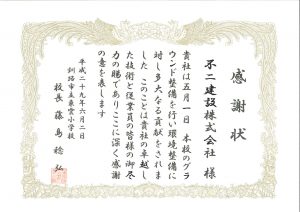 感謝状
不二建設株式会社 様
貴社は五月一日 本校のグラ
ウンド整備を行い環境整備に
対し多大なる貢献をされま
した このことは貴社の卓越し
た技術と従業員の皆様の御尽
力の賜でありここに深く感謝
の意を表します
平成二十九年六月二日
釧路市立東雲小学校
校長 藤島 稔弘